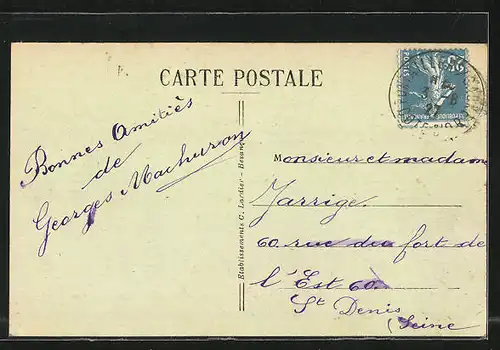 CARTE POSTALE
Bonnes Amitiés
de
Georges Machuron
Etablissements C. Lardier - Besançon
Monsieur et madame
Jarrige
60 rue du fort de
l'Est 60.
St Denis
(Seine